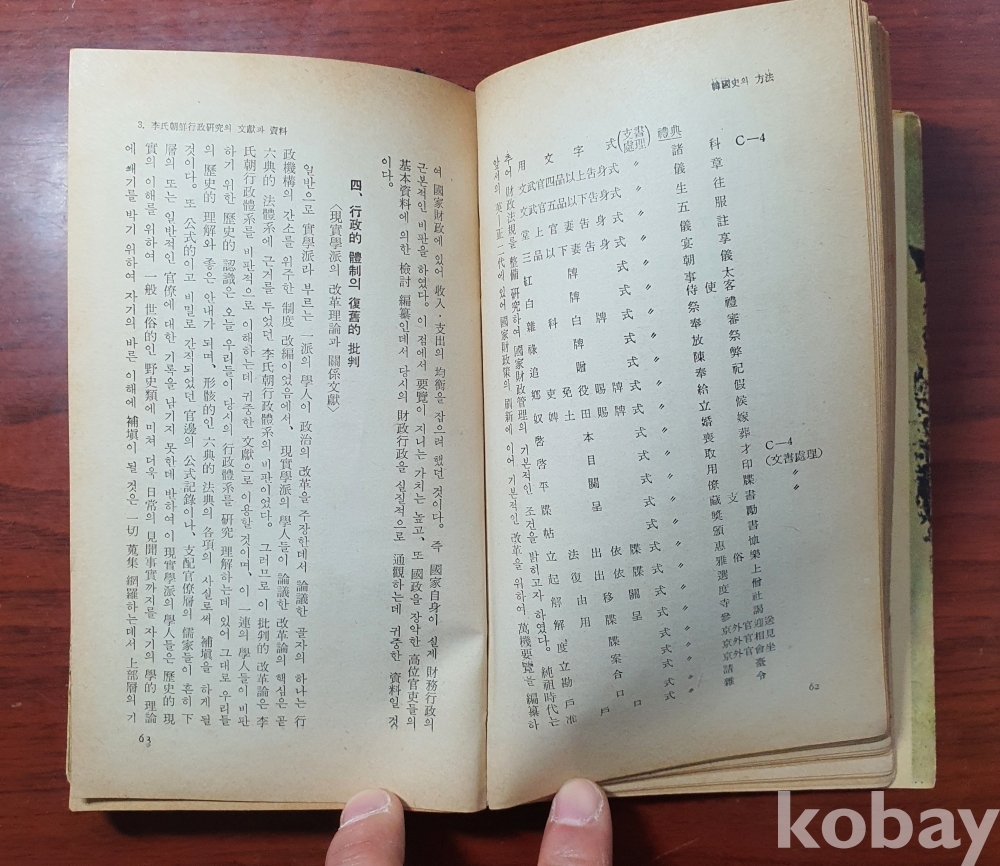 韓國史의 方法
禮典
諸科 C—4
儀章
生往
五服
儀註
宴享
朝儀
事太
待使客
祭禮
奉審
陳弊
奉祀
給假
立候
婚嫁
喪葬
取才
用印
藏文書
獎勵
惠恤
雅俗樂
選上
度僧
寺社
參謁
京外官迎送
京外官相見
京外官會坐
請臺
雜令
用文字式 (文書處理) C—4 (文書處理)
文武官四品以上告身式 〃
文武官五品以下告身式 〃
堂上官妻告身式 〃
三品以下妻告身式 〃
紅牌式 〃
白牌式 〃
雜科白牌式 〃
祿牌式 〃
追贈式 〃
鄕吏免役賜牌式 〃
奴婢土田賜牌式 〃
啓本式 〃
啓目式 〃
平關式 〃
牒呈式 〃
帖式 〃
立法出依牒式 〃
起復出依牒式 〃
解由移關式 〃
度牒式 〃
立案式 〃
勘合式 〃
戶口式 〃
准戶口式 〃
앞서의 英—正 二代에 있어 國家財政策의 刷新에 이어 기본적인 改革을 위하여 萬機要覽을 編纂하
추어 財政法規를 整備 研究하여 國家財政管理의 기본적인 조건을 밝히고자 하였다. 純祖時代는
62
3. 李氏朝鮮行政硏究의 文獻과 資料
여 國家財政에 있어 收入·支出의 均衡을 잡으려 했던 것이다. 즉 國家自身이 실제 財務行政의
근본적인 비판을 하였다. 이 점에서 要覽이 지니는 가치는 높고, 또 國政을 장악한 高位官吏들의
基本資料에 의한 檢討 編纂인데서 당시의 財政行政을 실질적으로 通觀하는데 귀중한 資料일 것
이다.
四、行政的 體制의 復舊的 批判
〈現實學派의 改革理論과 關係文獻〉
일반으로 實學派라 부르는 一派의 學人이 政治의 改革을 주장한데서 論議한 골자의 하나는 行
政機構의 간소를 위주한 制度 改編이었음에서、現實學派의 學人들이 論議한 改革論의 핵심은 곧
六典的 法體系에 근거를 두었던 李氏朝行政體系의 비판이었다. 그러므로 이 批判的 改革論은 李
氏朝行政體系를 비판적으로 이해하는데 귀중한 文獻으로 이용할 것이며、이 一連의 學人들이 비판
하기 위한 歷史的 認識은 오늘 우리들이 당시의 行政體系를 硏究 理解하는데 있어 그대로 우리들
의 歷史的 理解와 좋은 안내가 되며、形骸的인 六典的 法典의 各項의 사실로써 補塡을 하게 될
것이다. 또 公式的이고 비밀로 간직되었던 官邊의 公式記錄이나、支配官僚層의 儒家들이 흔히 下
層의 또는 일반적인 官僚에 대한 기록을 남기지 못한데 반하여 이 現實學派의 學人들은 歷史的 現
實의 이해를 위하여 一般 世俗的인 野史類에 미쳐 더욱 日常의 見聞事實까지를 자기의 學的 理論
에 쐐기를 박기 위하여 자기의 바른 이해에 補塡이 될 것은 一切 蒐集 網羅하는데서 上部層의 기
63
kobay